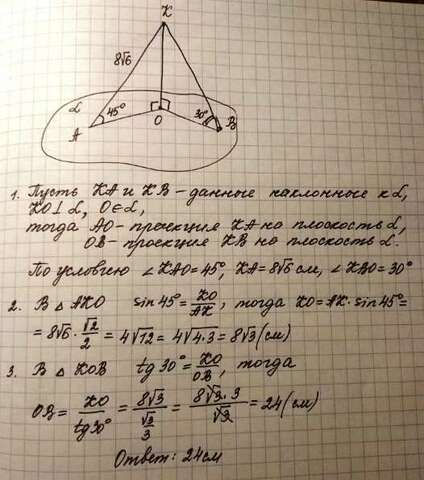 K
8√6
α
45°
30°
A
O
B
1. Пусть KA и KB – данные наклонные к α,
KO⊥α, O∈α,
тогда AO – проекция KA на плоскость α,
OB – проекция KB на плоскость α.
По условию ∠KAO = 45°, KA = 8√6 см, ∠KBO = 30°
2. В △ AKO sin 45° = KO/AK, тогда KO = AK · sin 45° =
= 8√6 · √2/2 = 4√12 = 4√4·3 = 8√3 (см)
3. В △ KOB tg 30° = KO/OB, тогда
OB = KO/tg 30° = 8√3/(√3/3) = 8√3·3/√3 = 24 (см)
Ответ: 24 см